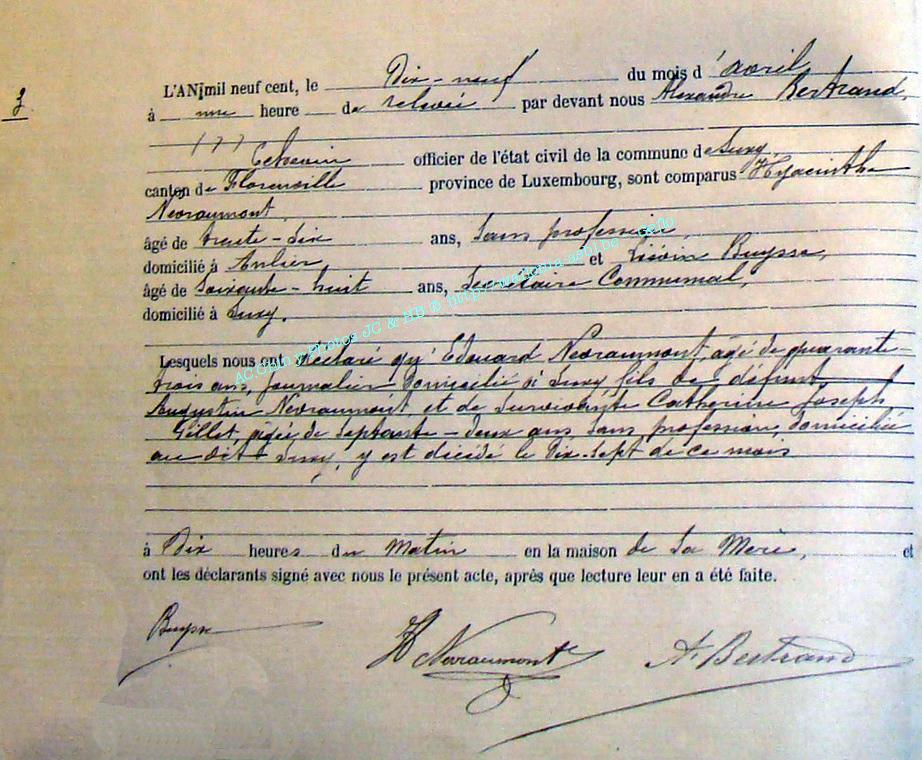 3
L'AN mil neuf cent, le Dix-neuf du mois d'avril
à une heure de relevée par devant nous Alexandre Bertrand,
Echevin officier de l'état civil de la commune de Suxy
canton de Florenville province de Luxembourg, sont comparus Hyacinthe
Nevraumont
âgé de trente-six ans, Sans profession,
domicilié à Anlier, et Liévin Buysse,
âgé de Soixante-huit ans, Secrétaire Communal,
domicilié à Suxy.
Lesquels nous ont Déclaré qu'Edouard Nevraumont, agé de quarante-
trois ans, Journalier Domicilié à Suxy fils de défunt
Augustin Nevraumont, et de Survivante Catherine Joseph
Gillet, agée de Septante-deux ans, Sans profession, domiciliée
au dit Suxy, y est décédé le Dix-Sept de ce mois
à Dix heures du Matin en la maison de Sa Mère, et
ont les déclarants signé avec nous le présent acte, après que lecture leur en a été faite.
Buysse H Nevraumont A. Bertrand